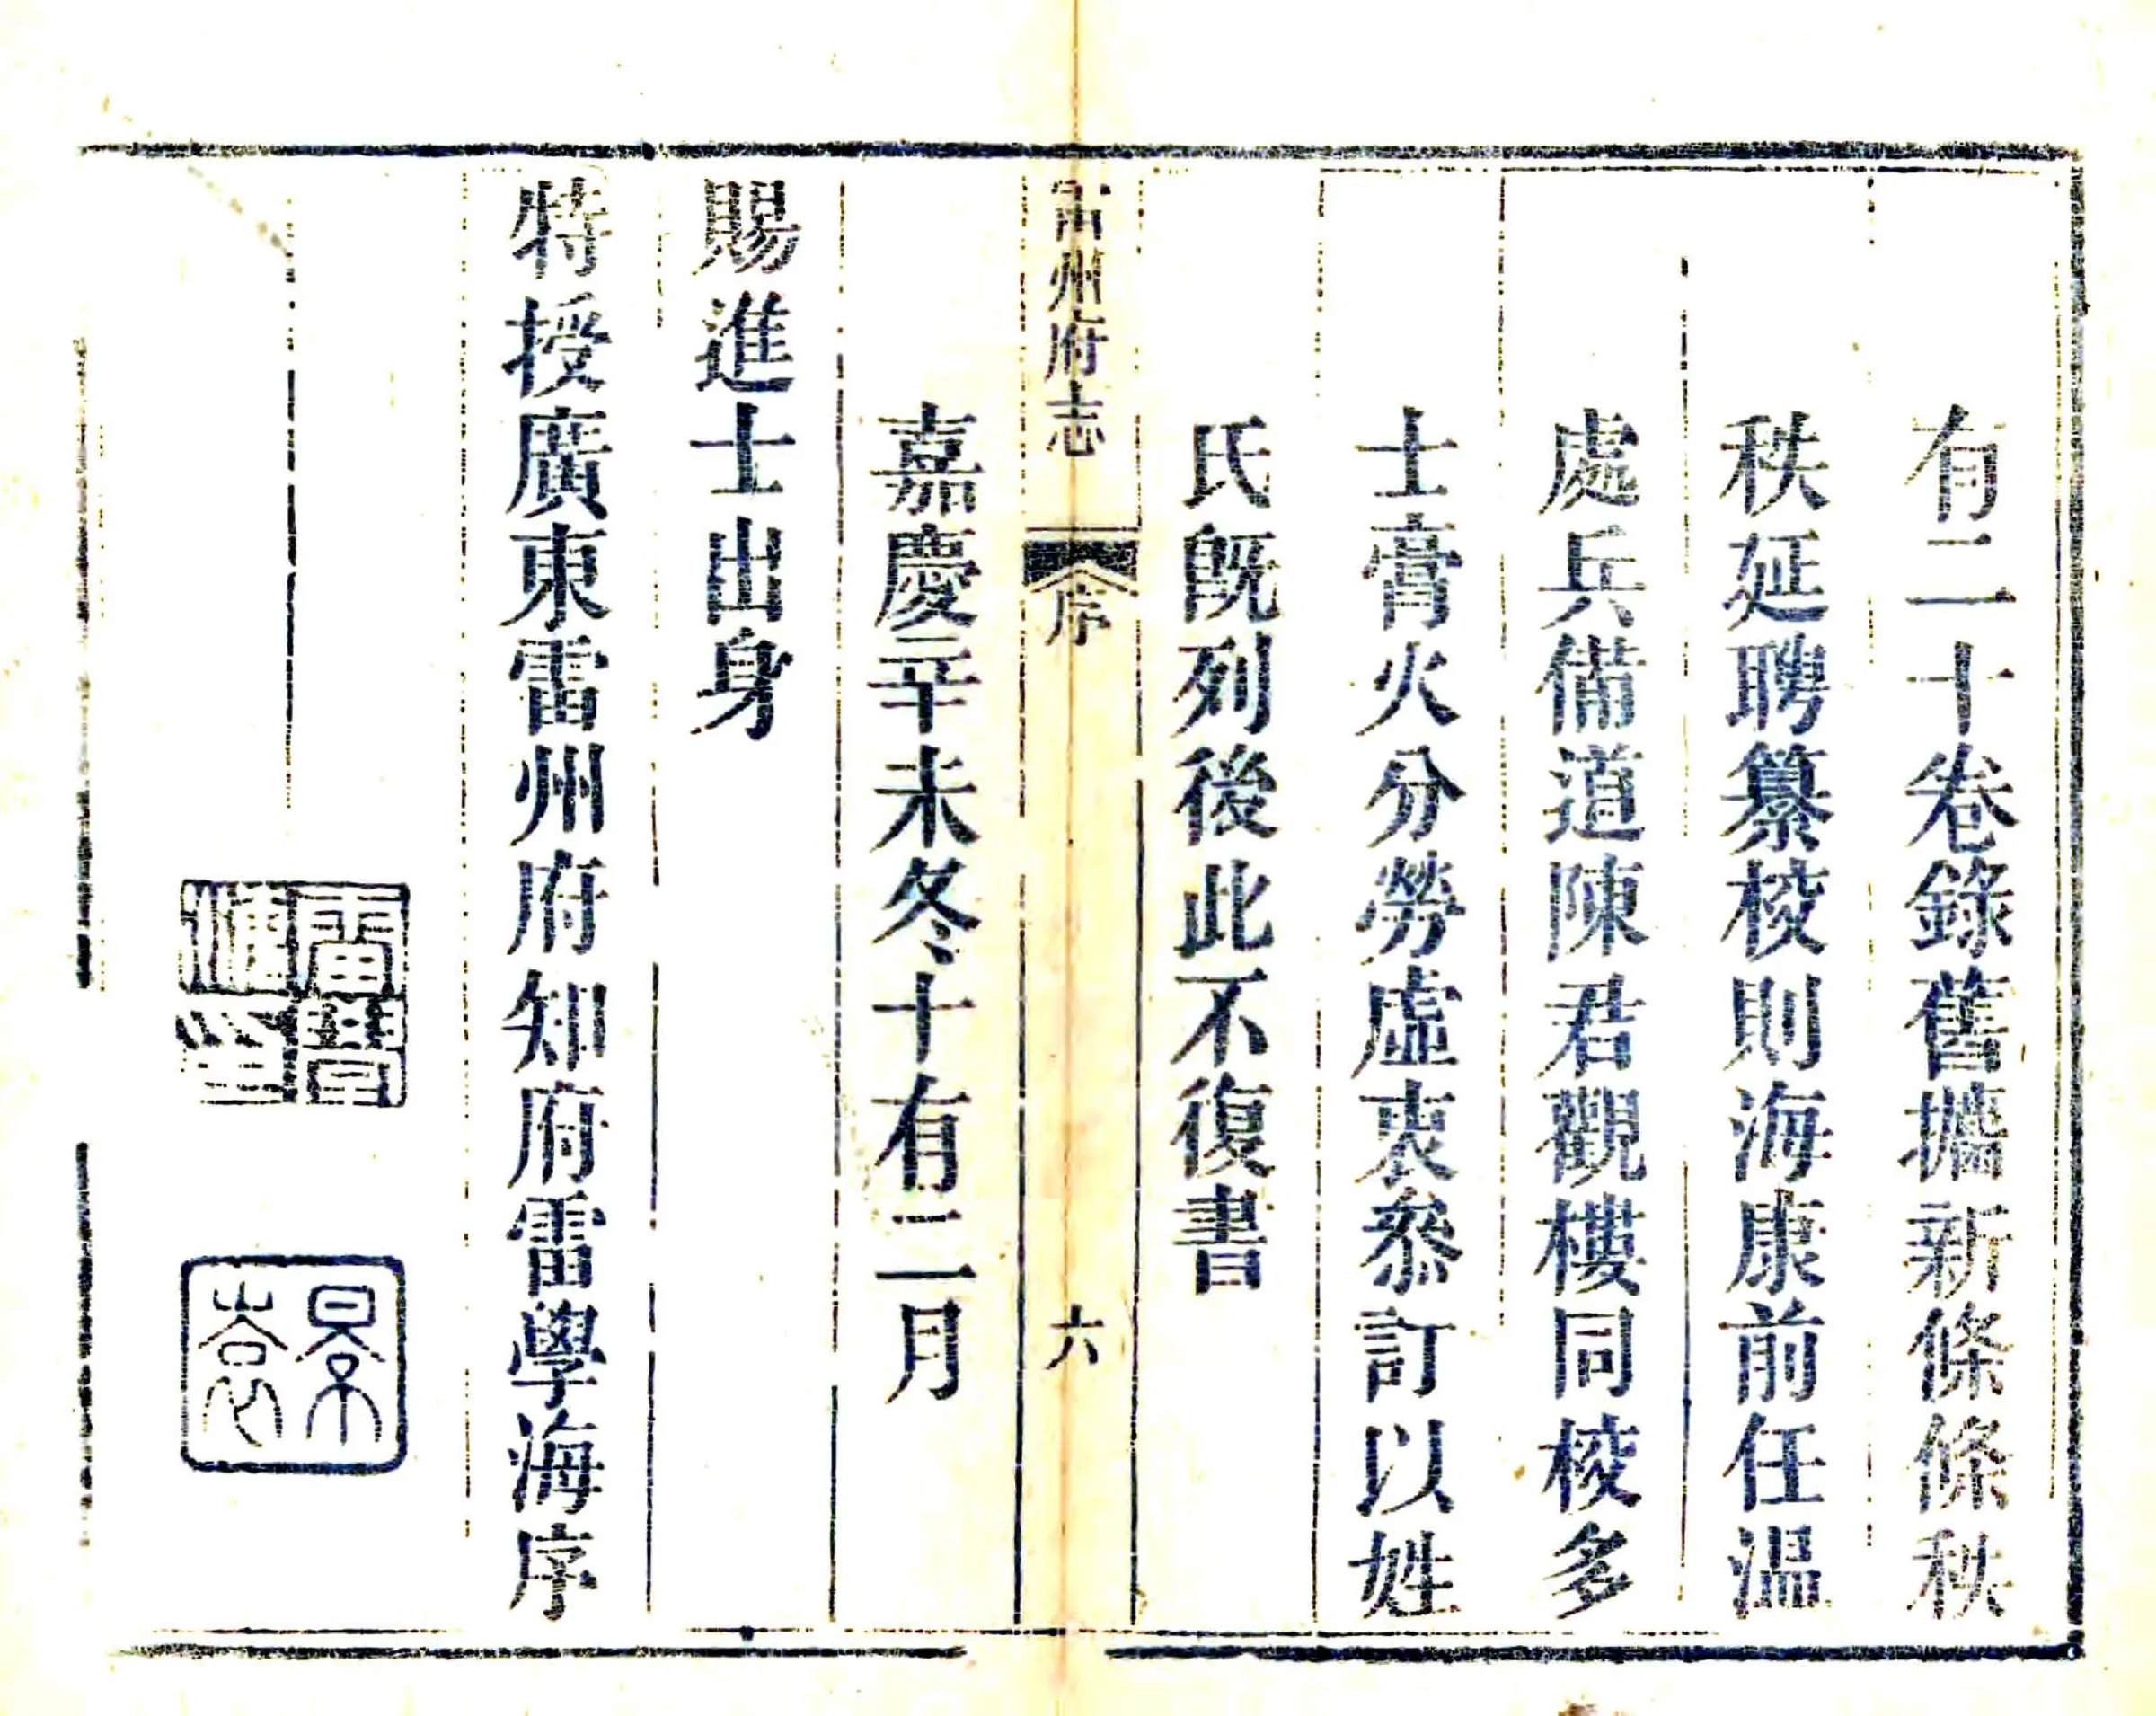 有二十卷錄舊攟新條條秩
秩延聘纂校則海康前任溫
處兵備道陳君觀樓同校多
士膏火分勞虛衷叅訂以姓
氏旣列後此不復書
雷州府志
序
六
嘉慶辛未冬十有二月
賜進士出身
特授廣東雷州府知府雷學海序
雷學海印
景崧